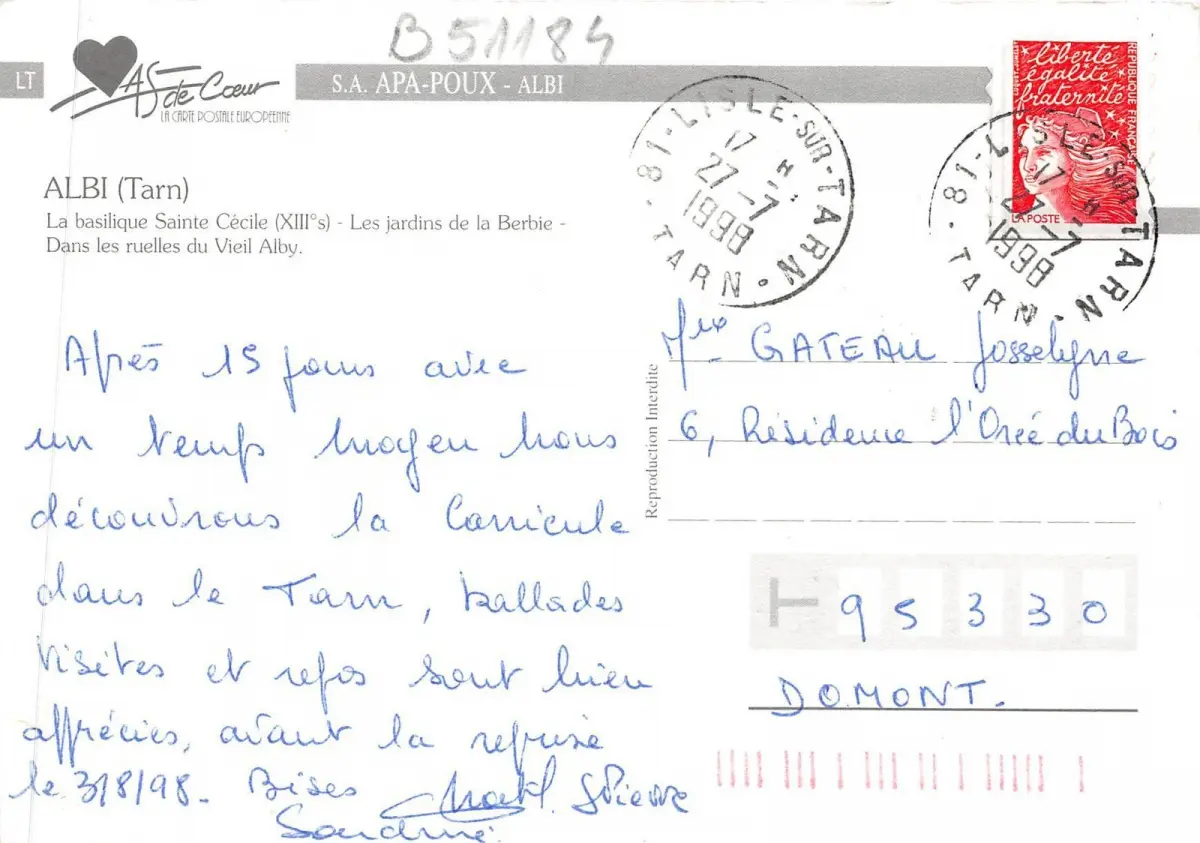 B51184
LT
As de Cœur
LA CARTE POSTALE EUROPEENNE
S.A. APA-POUX - ALBI
liberté
égalité
fraternité
REPUBLIQUE FRANÇAISE
LA POSTE
81-LISLE-SUR-TARN
17 H
27-7
1998
TARN
81-LISLE-SUR-TARN
17 H
27-7
1998
TARN
ALBI (Tarn)
La basilique Sainte Cécile (XIII°s) - Les jardins de la Berbie -
Dans les ruelles du Vieil Alby.
Après 15 jours avec
un temps moyen nous
découvrons la Canicule
dans le Tarn, ballades
visites et repos sont bien
appréciés, avant la reprise
le 3/8/98. Bises
Pierre
Sandrine
Reproduction Interdite
GATEAU Josselyne
6, Résidence l'Orée du Bois
95330
DOMONT.